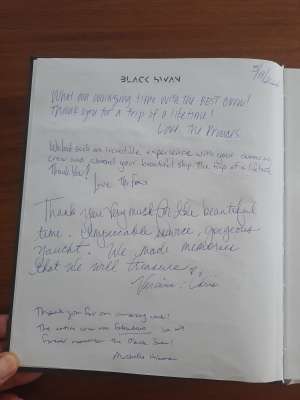 BLACK SWAN
What an amazing time with the BEST crew!
Thank you for a trip of a lifetime!
Love The
We had such an incredible experience with your awesome
crew and aboard your beautiful ship. The trip of a lifetime
Thank You!
Love The
Thank you very much for the beautiful
time. Impeccable service, gorgeous
yaucht. We made memories
that we will treasure.
Thank you for an amazing week!
The entire crew was fabulous
forever remember the Black Swan!
Michelle